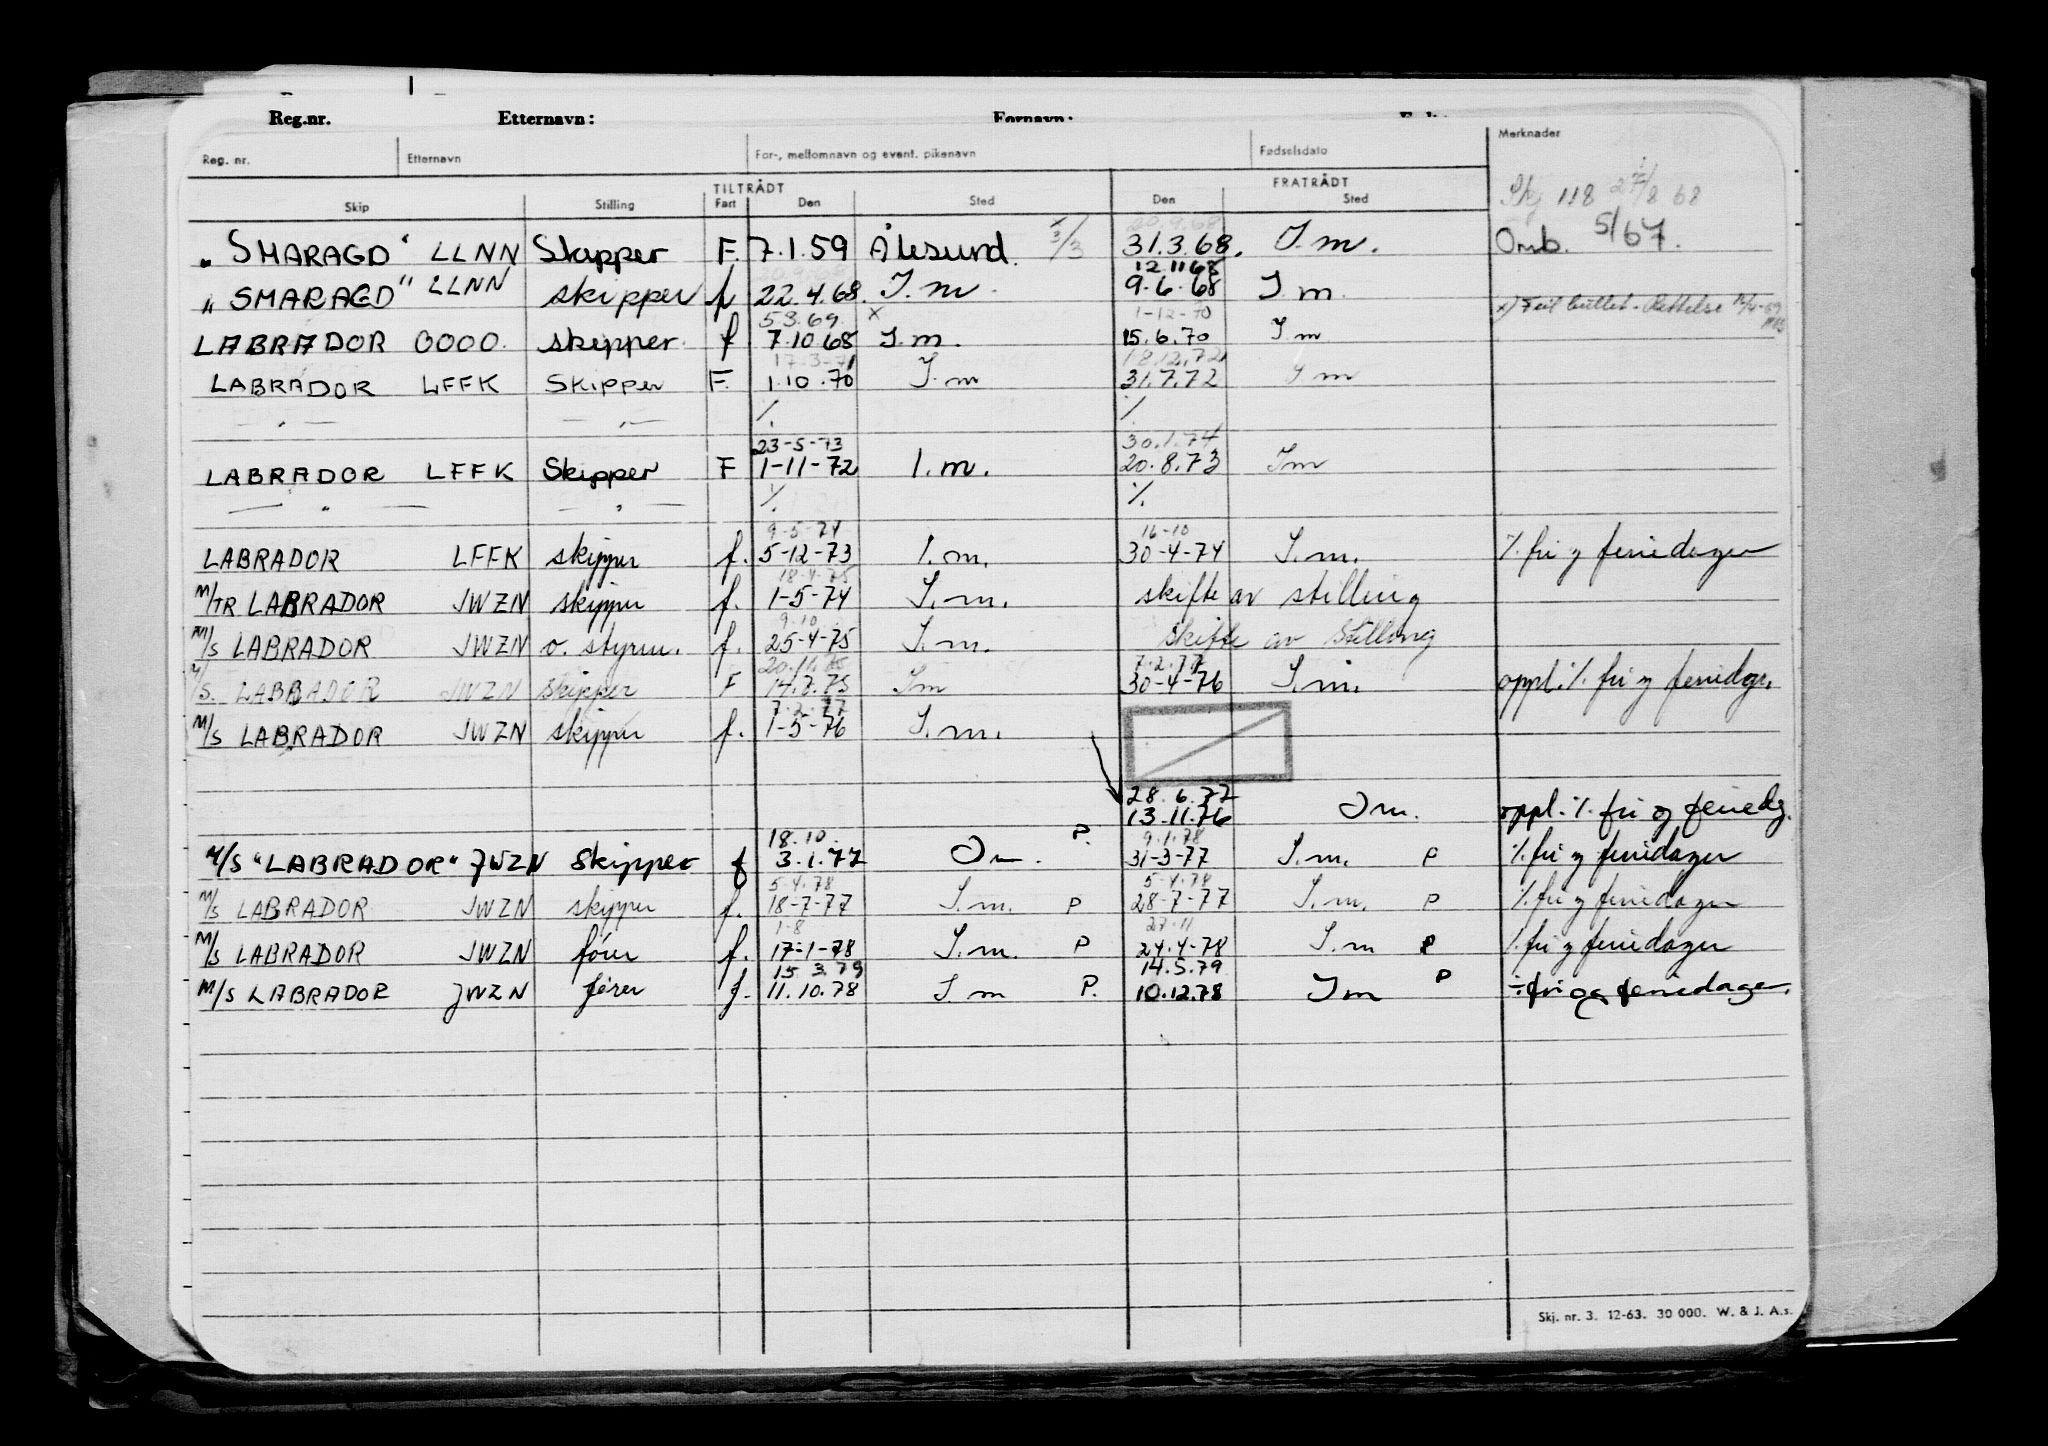 Reg.nr. Etternavn: Fornavn:
Reg. nr. Etternavn For-, mellomnavn og event. pikenavn Fødselsdato Merknader
TILTRÅDT FRATRÅDT
Skip Stilling Fart Den Sted Den Sted
Skj 118 27/8 68
20.9.68
„ SMARAGD " LLNN Skipper F. 7.1.59 Ålesund. x 3/3 31.3.68. I.m. Omb. 5/67.
20.9.68 12.11 68
„ SMARAGD " LLNN skipper f 22.4.68. I.m. 9.6.68 I m.
5 3.69. x 1-12-70 x) Feil Rettelse
LABRADOR OOOO. skipper. f 7.10 68 I.m. 15.6.70 I m
17-3-71 18.12.72
LABRADOR LFFK Skipper F. 1.10.70 I.m 31.7.72 I m
— „ — — „ — ./. ./.
23-5-73 30.1.74
LABRADOR LFFK Skipper F 1-11-72 I.m. 20.8.73 Im
— „ — — „ — ./. ./.
9-5-74 16-10
LABRADOR LFFK skipper f. 5-12-73 I.m. 30-4-74 I.m. ./. fri og feriedager
18-4-75
M/TR LABRADOR JWZN skipper f. 1-5-74 I.m. skifte av stilling
9.10
M/S LABRADOR JWZN o. styrm. f. 25-4-75 I.m. skifte av Stilling
20.11.75 7.2.77
M/S. LABRADOR JWZN skipper F 14.8.75 Im 30-4-76 I.m. oppl. ./. fri og feriedgr.
7.2.77
M/S LABRADOR JWZN skipper f. 1-5-76 I.m.
28.6.77
13.11.76 Im. oppl. ./. fri og feriedg.
18.10. 9.1.78
M/S "LABRADOR" JWZN Skipper f 3.1.77 Im. P. 31-3-77 I.m. P ./. fri og feriedager
5-4.78 5-4.78
M/S LABRADOR JWZN skipper f. 18-7-77 I.m. P 28-7-77 I.m. P ./. fri og feriedager
1-8 27-11
M/S LABRADOR JWZN fører f. 17-1-78 I.m. P 24.4-78 I.m P ./. fri og feriedager
15 3.79 14.5.79
M/S LABRADOR JWZN fører f. 11.10.78 I m P. 10.12.78 Im P ÷ fri og feriedager.
Skj. nr. 3. 12-63. 30 000. W. & J. A.s.